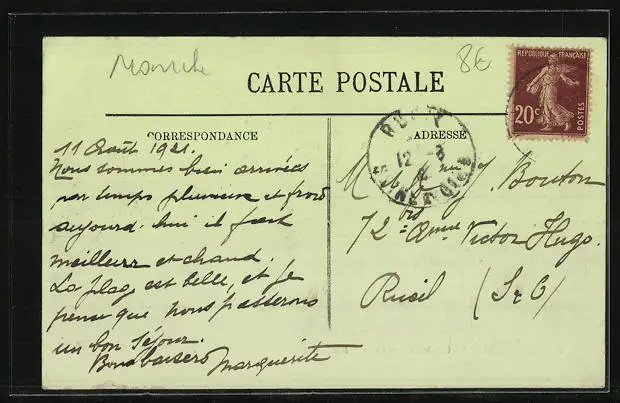 Manche
8€
CARTE POSTALE
RÉPUBLIQUE FRANÇAISE
20c
POSTES
CORRESPONDANCE
ADRESSE
11 Août 1921.
Nous sommes bien arrivées
par temps pluvieux et froid
aujourd'hui il fait
meilleur et chaud.
La plage est belle, et je
pense que nous passerons
un bon séjour.
Bons baisers Marguerite
12 -8
SEINE-&-OISE
M Bouton
72 bis Avenue Victor Hugo.
Rueil (S & O)